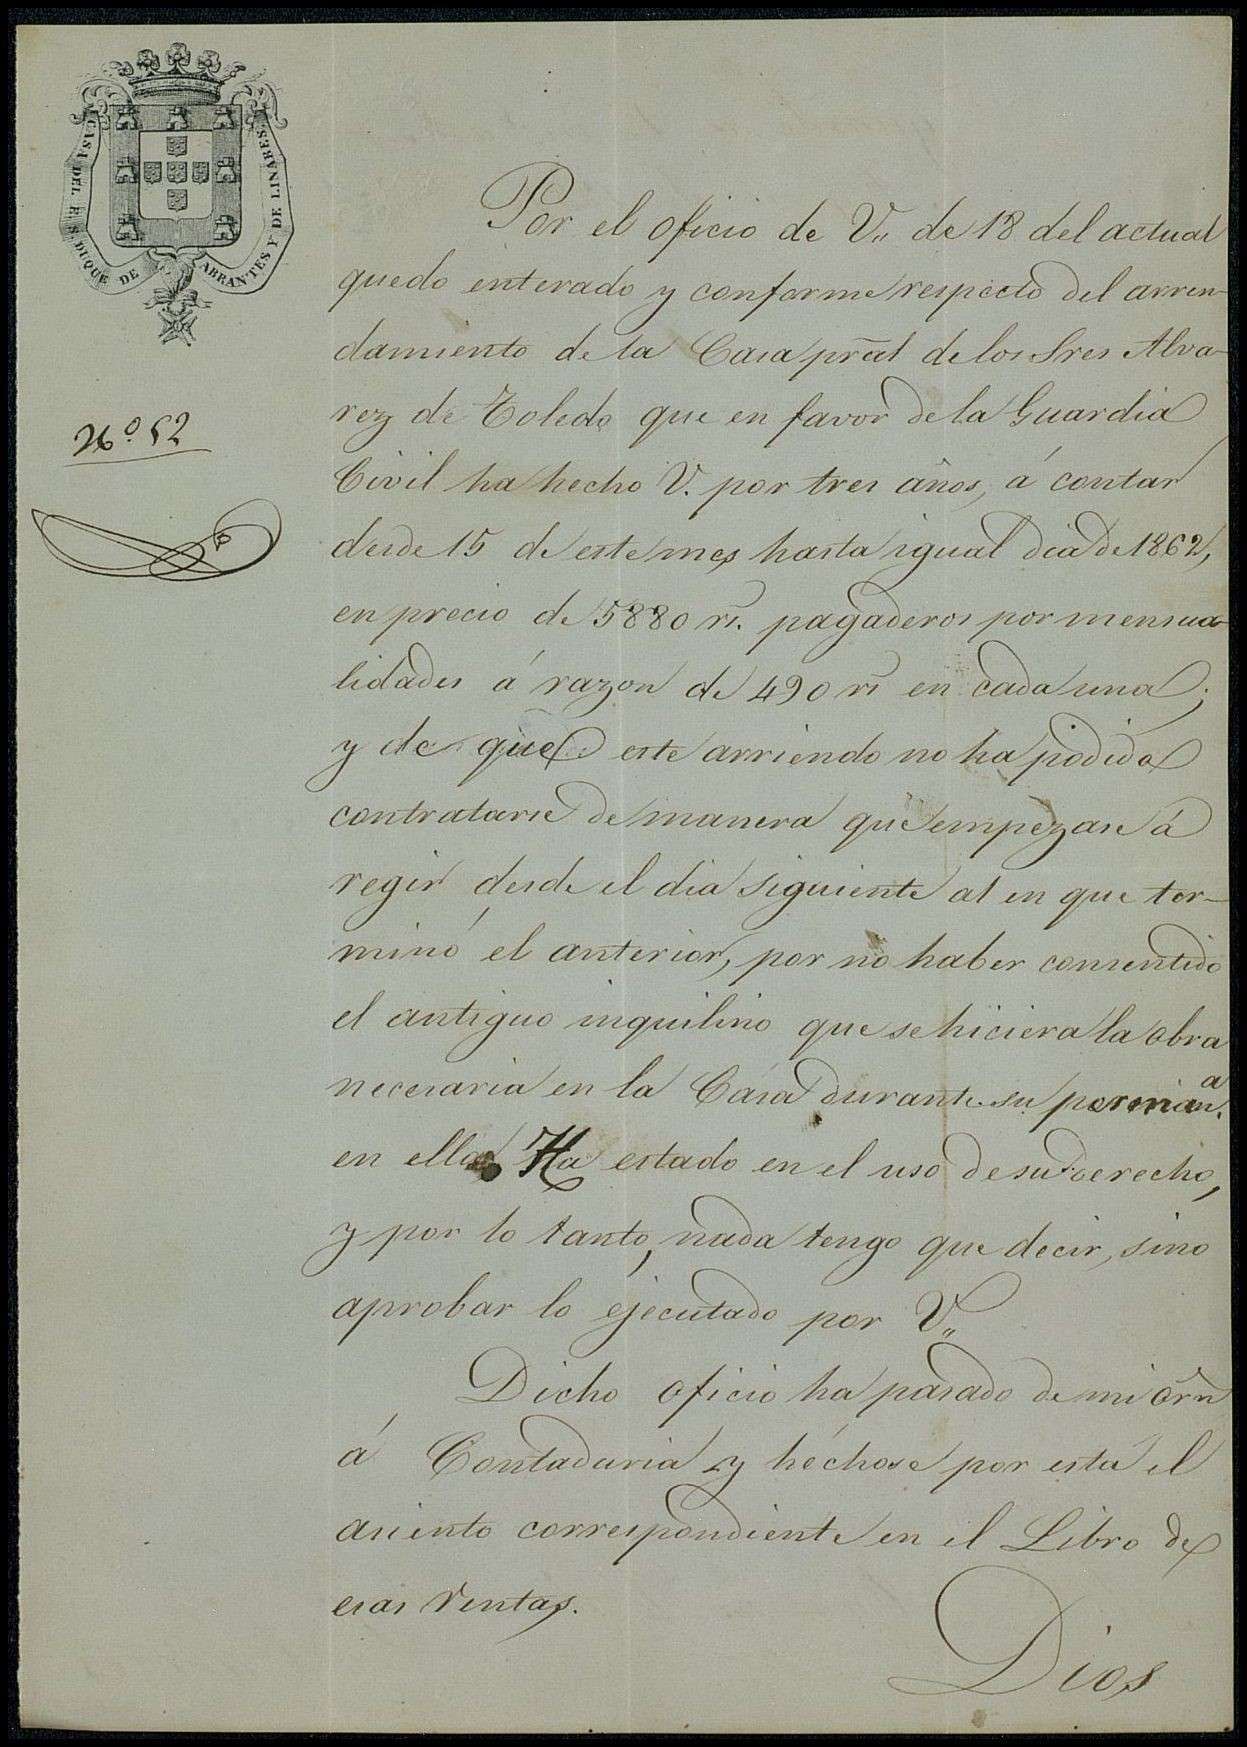 CASA DEL E. S. DUQUE DE ABRANTES Y DE LINARES.
Nº 52
Por el oficio de V. de 18 del actual
quedo enterado y conforme respecto del arren-
damiento de la Casa pral de los Sres Alva-
rez de Toledo que en favor de la Guardia
Civil ha hecho V. por tres años, á contar
desde 15 de este mes hasta igual dia de 1862,
en precio de 5880 rs. pagaderos por mensua-
lidades á razon de 490 rs en cada una;
y de que este arriendo no ha podido
contratarse de manera que empezase á
regir desde el dia siguiente al en que ter-
minó el anterior, por no haber consentido
el antiguo inquilino que se hiciera la obra
necesaria en la Casa durante su perman.ª
en ella. Ha estado en el uso de su derecho,
y por lo tanto, nada tengo que decir, sino
aprobar lo ejecutado por V.
Dicho oficio ha pasado de mi orn
á Contaduria y héchose por esta el
asiento correspondiente en el Libro de
esas rentas.
Dios